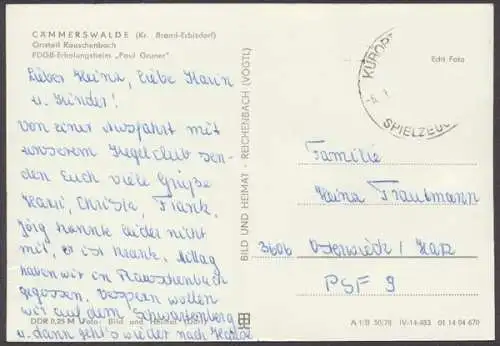 CÄMMERSWALDE (Kr. Brand-Erbisdorf)
Ortsteil Rauschenbach
FDGB-Erholungsheim „Paul Gruner“
Lieber Heinz, liebe Karin
u. Kinder!
Von einer Ausfahrt mit
unserem Kegelclub sen-
den Euch viele Grüße
Christa, Frank,
Jörg konnte leider nicht
mit, er ist krank. Mittag
haben wir in Rauschenbach
gegessen. Vespern wollen
wir auf dem Schwartenberg
u. dann geht's wieder nach Hause
DDR 0,25 M Foto: Bild und Heimat
BILD UND HEIMAT · REICHENBACH (VOGTL)
Echt Foto
KURORT
SPIELZEUG
Familie
Heinz Trautmann
3606 Osterwieck / Harz
PSF 9
A 1/B 50/78 IV-14-483 01 14 04 670